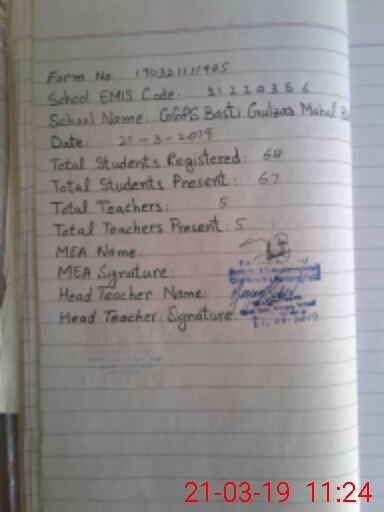 Form No. 190321111485
School EMIS Code: 31220356
School Name: GGPS Basti Gulzar Mahal
Date: 21-3-2019
Total Students Registered: 68
Total Students Present: 67
Total Teachers: 5
Total Teachers Present: 5
MEA Name:
MEA Signature:
Head Teacher Name:
Head Teacher Signature
21-03-2019
21-03-19 11:24